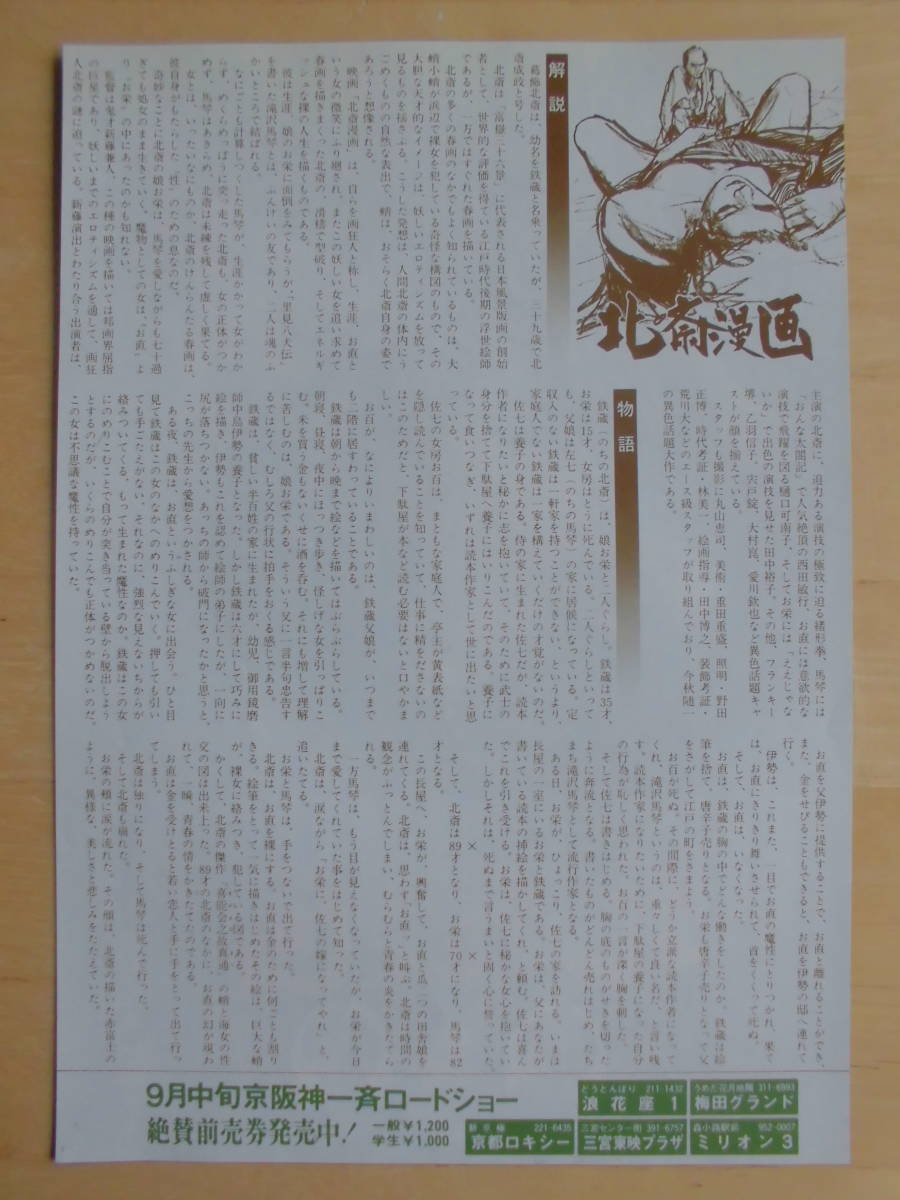 北斎漫画
解説
葛飾北斎は、幼名を鉄蔵と名乗っていたが、三十九歳で北
斎成政と号した。
北斎は「富嶽三十六景」に代表される日本風景版画の創始
者として、世界的な評価を得ている江戸時代後期の浮世絵師
であるが、一方ではすぐれた春画を描いている。
北斎の多くの春画のなかでもよく知られているものは、大
蛸小蛸が浜辺で裸女を犯している奇怪な構図のもので、その
大胆な天才的なイメージは、妖しいエロティシズムを放って
見るものを揺さぶる。こうした発想は、人間北斎の体内にう
ごめくものの自然な表出で、蛸は、おそらく北斎自身の姿で
あろうと想像される。
映画「北斎漫画」は、自らを画狂人と称し、生涯、お直と
いう女の微笑にふり廻され、またこの妖しい女を追い求めて
春画を描きまくった北斎の、清穂で型破り、そしてエネルギ
ッシュな裸の人生を描くものである。
彼は生涯、娘のお栄に面倒をみてもらうが、「里見八犬伝」
を書いた滝沢馬琴とは、ぶんけいの友であり、二人は魂のふ
かいところで結ばれる。
なにごとも計算しつくした馬琴が、生涯かかって女がわか
らず、めくらめっぽうに突っ走った北斎も、女の正体がつか
めず、馬琴はあきらめ、北斎は未練を残して虚しく果てる。
女とは、いったいなにものか、北斎のけんらんたる春画は、
彼自身がもたらした〝性〟のための息なのだ。
奇妙なことに北斎の娘お栄は、馬琴を愛しながらも七十過
ぎても処女のまま生きていく。魔物としての女は、「お直」よ
り「お栄」の中にあったのかも知れない。
監督は鬼才新藤兼人、この種の映画を描いては邦画界屈指
の巨星であり、妖しいまでのエロティシズムを通して、画狂
人北斎の謎に迫っている。新藤演出とわたり合う出演者は、
主演の北斎に、迫力ある演技の極致に迫る緒形拳、馬琴には
「おんな太閤記」で人気絶頂の西田敏行、お直には意欲的な
演技で飛躍を図る樋口可南子、そしてお栄には「ええじゃな
いか」で出色の演技を見せた田中裕子、その他、フランキー
堺、乙羽信子、宍戸錠、大村崑、愛川欽也など異色話題キャ
ストが顔を揃えている。
スタッフも撮影に丸山恵司、美術・重田重盛、照明・野田
正博、時代考証・林美一、絵画指導・田中博之、装飾考証・
荒川大などのエース級スタッフが取り組んでおり、今秋随一
の異色話題大作である。
物語
鉄蔵〈のちの北斎〉は、娘お栄と二人ぐらし。鉄蔵は35才、
お栄は15才、女房はとうに死んでいる。二人ぐらしといって
も、父娘は左七（のちの馬琴）の家に居候になっている。定
収入のない鉄蔵は一軒家を持つことができない、というより、
家庭人でない鉄蔵は一家を構えていくだけの才覚がないのだ。
佐七は養子の身である。侍の家に生まれた佐七だが、読本
作者になりたいと秘かに志を抱いていて、そのために武士の
身分を捨てて下駄屋へ養子にはいりこんだのである。養子に
なって食いつなぎ、いずれは読本作家として世に出たいと思
っている。
佐七の女房お百は、まともな家庭人で、亭主が黄表紙など
を隠し読んでいることを知っていて、仕事に精をださないの
はこのためだと、下駄屋が本など読む必要はないと口やかま
しい。
お百が、なによりいまわしいのは、鉄蔵父娘が、いつまで
も二階に居すわっていることである。
鉄蔵は朝から晩まで絵などを描いてはぶらぶらしている。
朝寝、昼寝、夜中にはほっつき歩き、怪しげな女を引っぱりこ
む。米を買う金もないくせに酒を呑む。それにも増して理解
に苦しむのは、娘お栄である。そういう父に一言半句忠告す
るではなく、むしろ父の行状に拍手をおくる感じである。
鉄蔵は、貧しい半百姓の家に生まれたが、幼児、御用鏡磨
師中島伊勢の養子となった。しかし鉄蔵は六才にして巧みに
絵を描き、伊勢もこれを認めて絵師の弟子にしたが、一向に
尻が落ちつかない。あっちの師から破門になったかと思うと、
こっちの先生から愛想をつかされる。
ある夜、鉄蔵は、お直というふしぎな女に出会う。ひと目
見て鉄蔵はこの女のなかへのめりこんでいく。押しても引い
ても手ごたえがない。それなのに、強烈な見えないちからが
絡みついてくる。もって生まれた魔性なのか、鉄蔵はこの女
にのめりこむことで自分が突き当っている壁から脱出しよう
とするのだが、いくらのめりこんでも正体がつかめないのだ。
この女は不思議な魔性を持っていた。
お直を父伊勢に提供することで、お直と離れることができ、
また、金をせびることもできると、お直を伊勢の邸へ連れて
行く。
伊勢は、これまた、一目でお直の魔性にとりつかれ、果て
は、お直にきりきり舞いさせられて、首をくくって死ぬ。
そして、お直は、いなくなった。
お直は、鉄蔵の胸の中でどんな働きをしたのか、鉄蔵は絵
筆を捨て、唐辛子売りとなる。お栄も唐辛子売りとなって父
をさがして江戸の町をさまよう。
お百が死ぬ。その間際に、どうか立派な読本作者になって
くれ、滝沢馬琴というのは、重々しくて良い名だ、と言い残
す。読本作家になりたいために、下駄屋の養子になった自分
の行為が恥しく思われた。お百の一言が深く胸を刺した。
そして佐七は書きはじめる。胸の底のものがせきを切った
ように奔流となる。書いたものがどんどん売れはじめ、たち
まち滝沢馬琴として流行作家となる。
ある日、お栄が、ひょっこり、佐七の家を訪れる。いまは
長屋の一室にいるお栄と鉄蔵である。お栄は、父にあなたが
書いている読本の挿絵を描かしてくれ、と頼む。佐七は喜ん
でこれを引き受ける。お栄は、佐七に秘かな女心を抱いてい
た。しかしそれは、死ぬまで言うまいと固く心に誓っていた。
× × ×
そして、北斎は89才となり、お栄は70才になり、馬琴は82
才となる。
この長屋へ、お栄が、興奮して、お直と瓜二つの田舎娘を
連れてくる。北斎は、思わず〝お直〟と叫ぶ。北斎は時間の
観念がふっとんでしまい、むらむらと青春の炎をかきたてら
れる。
一方馬琴は、もう目が見えなくなっていたが、お栄が今日
まで愛してくれていた事をはじめて知った。
北斎は、涙ながら「お栄に、佐七の嫁になってやれ」と、
追いたてる。
お栄と馬琴は、手をつないで出て行った。
北斎は、お直を裸にする。お直は金のために何ごとも割り
きる。絵筆をとって一気に描きはじめたその絵は、巨大な蛸
が、裸女に絡みつき、犯している図である。
かくして、北斎の傑作「喜能会之故真通」の蛸と海女の性
交の図は出来上った。89才の北斎のなかに、お直の幻が現わ
れて、一瞬、青春の情をかきたてたのである。
お直は金を受けとると若い恋人と手に手をとって出て行っ
てしまう。
北斎は独りになり、そして馬琴は死んで行った。
そして北斎も崩れた。
お栄の頬に涙が流れた。その顔は、北斎の描いた赤富士の
ように、異様な、美しさと悲しみをたたえていた。
9月中旬京阪神一斉ロードショー
絶賛前売券発売中！
一般￥1,200
学生￥1,000
どうとんぼり 211-1432
浪花座1
うめだ花月地階 311-6893
梅田グランド
新京極 221-6435
京都ロキシー
三宮センター街 391-6757
三宮東映プラザ
森小路駅前 952-0007
ミリオン3